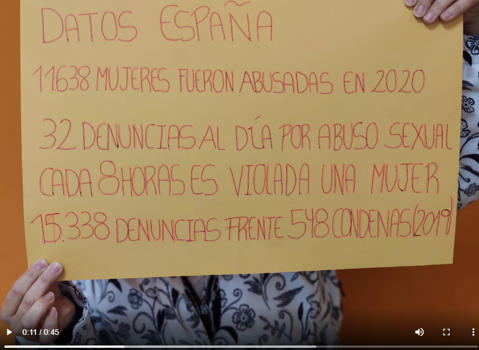 DATOS ESPAÑA
11638 MUJERES FUERON ABUSADAS EN 2020
32 DENUNCIAS AL DÍA POR ABUSO SEXUAL
CADA 8 HORAS ES VIOLADA UNA MUJER
15.338 DENUNCIAS FRENTE 548 CONDENAS (2019)
0:11 / 0:45